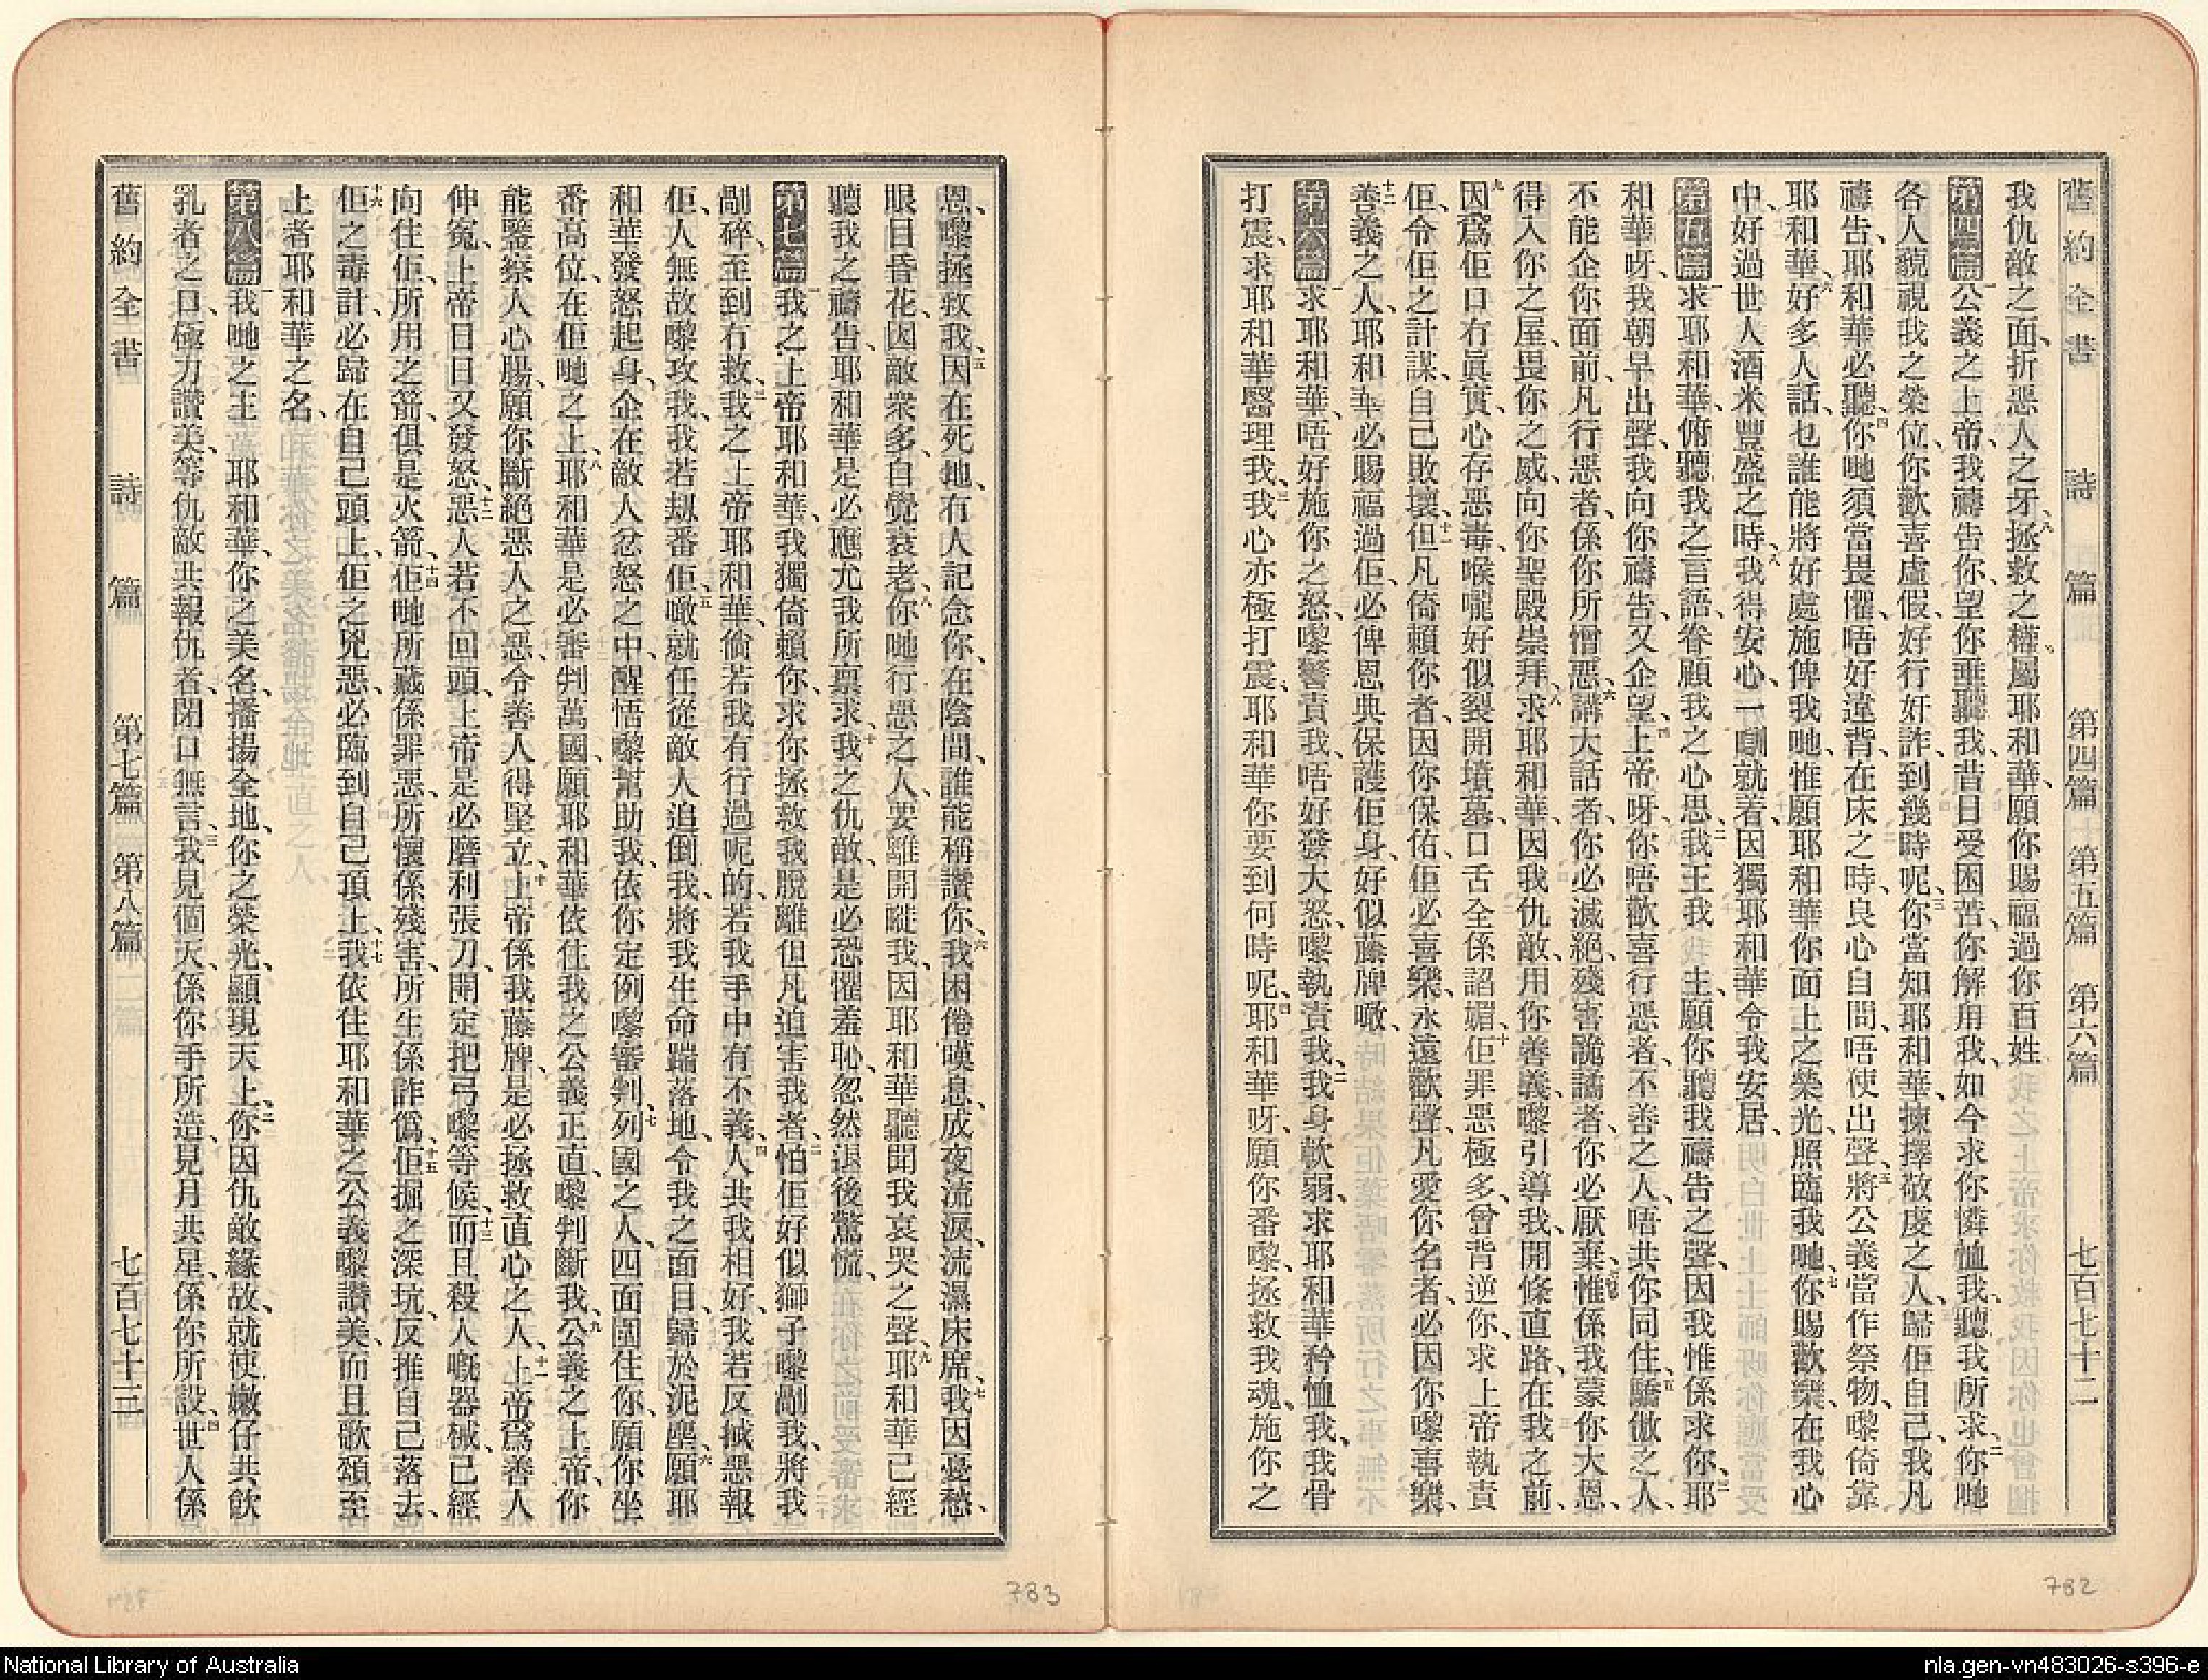 舊約全書 詩篇 第四篇 第五篇 第六篇 七百七十二
我仇敵之面、折惡人之牙、八拯救之權、屬耶和華、願你賜福過你百姓、
第四篇 一公義之上帝、我禱告你、望你垂聽我、昔日受困苦、你解用我、如今求你憐恤我、聽我所求、二你哋
各人藐視我之榮位、你歡喜虛假、好行奸詐、到幾時呢、三你當知耶和華、揀擇敬虔之人、歸佢自己、我凡
禱告、耶和華必聽、四你哋須當畏懼、唔好違背、在床之時、良心自問、唔使出聲、五將公義當作祭物、嚟倚靠
耶和華、六好多人話、乜誰能將好處施俾我哋、惟願耶和華你面上之榮光、照臨我哋、七你賜歡樂、在我心
中、好過世人酒米豐盛之時、八我得安心、一瞓就着、因獨耶和華令我安居、
第五篇 一求耶和華、俯聽我之言語、眷顧我之心思、二我王我 主、願你聽我禱告之聲、因我惟係求你、三耶
和華呀、我朝早出聲、我向你禱告、又企望、四上帝呀、你唔歡喜行惡者、不善之人、唔共你同住、五驕傲之人、
不能企你面前、凡行惡者、係你所憎惡、六講大話者、你必滅絕、殘害詭譎者、你必厭棄、七惟係我蒙你大恩、
得入你之屋、畏你之威、向你聖殿崇拜、八求耶和華、因我仇敵、用你善義、嚟引導我、開條直路、在我之前、
九因爲佢口冇眞實、心存惡毒、喉嚨好似裂開墳墓、口舌全係諂媚、十佢罪惡極多、曾背逆你、求上帝執責
佢、令佢之計謀、自己敗壞、十一但凡倚賴你者、因你保佑、佢必喜樂、永遠歡聲、凡愛你名者、必因你嚟喜樂、
十二善義之人、耶和華必賜福過佢、必俾恩典保護佢身、好似藤牌噉、
第六篇 一求耶和華、唔好施你之怒、嚟警責我、唔好發大怒、嚟執責我、二我身軟弱、求耶和華矜恤我、我骨
打震、求耶和華醫理我、三我心亦極打震、耶和華你要到何時呢、四耶和華呀、願你番嚟、拯救我魂、施你之
782
恩、嚟拯救我、五因在死地、冇人記念你、在陰間、誰能稱讚你、六我困倦嘆息、成夜流淚、流濕床席、七我因憂愁、
眼目昏花、因敵衆多、自覺衰老、八你哋行惡之人、要離開嗻我、因耶和華聽聞我哀哭之聲、九耶和華已經
聽我之禱告、耶和華是必應允我所禀求、十我之仇敵、是必恐懼羞恥、忽然退後驚慌、
第七篇 一我之上帝耶和華、我獨倚賴你、求你拯救我脫離但凡迫害我者、二怕佢好似獅子嚟劏我、將我
劏碎、至到冇救、三我之上帝耶和華、倘若我有行過呢的、若我手中有不義、四人共我相好、我若反㧻惡報
佢、人無故嚟攻我、我若刼番佢、五噉就任從敵人追倒我、將我生命踹落地、令我之面目、歸於泥塵、六願耶
和華發怒起身、企在敵人忿怒之中、醒悟嚟幫助我、依你定例嚟審判、七列國之人、四面圍住你、願你坐
番高位、在佢哋之上、八耶和華是必審判萬國、願耶和華依住我之公義正直、嚟判斷我、九公義之上帝、你
能鑒察人心腸、願你斷絕惡人之惡、令善人得堅立、十上帝係我藤牌、是必拯救直心之人、十一上帝爲善人
伸冤、上帝日日又發怒、十二惡人若不回頭、上帝是必磨利張刀、開定把弓嚟等候、十三而且殺人嘅器械、已經
向住佢、所用之箭、俱是火箭、十四佢哋所藏係罪惡、所懷係殘害、所生係詐僞、十五佢掘之深坑、反推自己落去、
十六佢之毒計、必歸在自己頭上、佢之兇惡、必臨到自己頂上、十七我依住耶和華之公義嚟讚美、而且歌頌至
上者耶和華之名、
第八篇 一我哋之主 耶和華、你之美名、播揚全地、你之榮光、顯現天上、二你因仇敵緣故、就使嫩仔共飲
乳者之口、極力讚美、等仇敵共報仇者、閉口無言、三我見個天、係你手所造、見月共星、係你所設、四世人係
舊約全書 詩篇 第七篇 第八篇 七百七十三
783
National Library of Australia
nla.gen-vn483026-s396-e